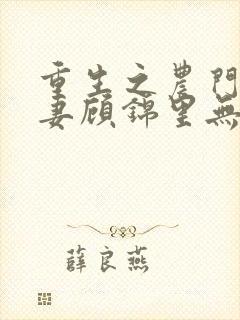 重生之農門
妻顧錦里無
薛良燕